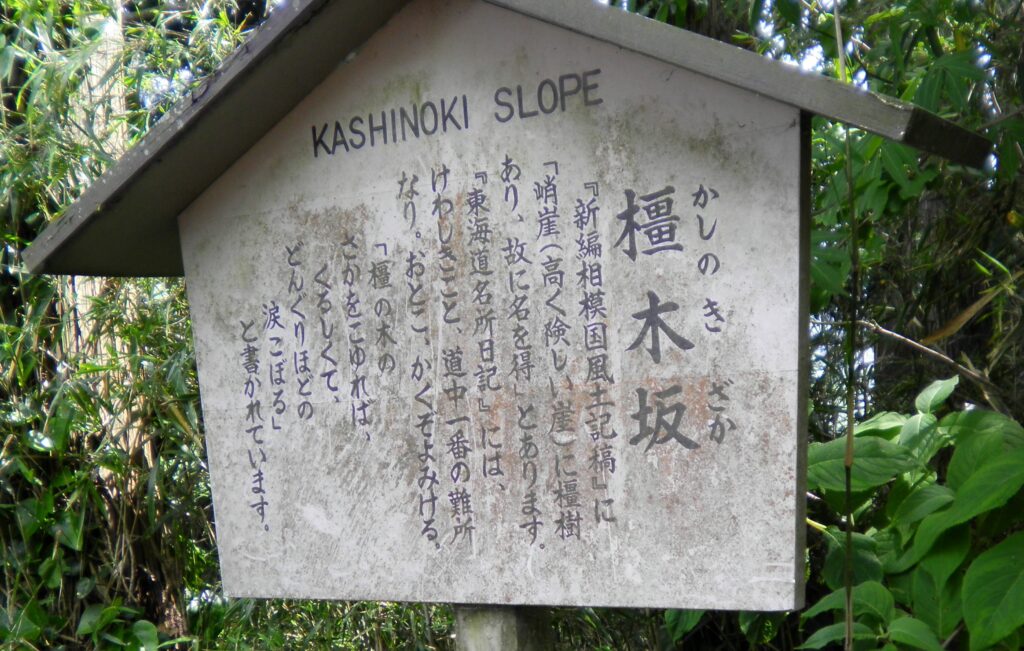 KASHINOKI SLOPE
かしのきざか
橿木坂
『新編相模国風土記稿』に
「峭崖(高く険しい崖)に橿樹
あり、故に名を得」とあります。
『東海道名所日記』には、
けわしきこと、道中一番の難所
なり。おとこ、かくぞよみける。
「橿の木の
さかをこゆれば、
くるしくて、
どんぐりほどの
涙こぼる」
と書かれています。